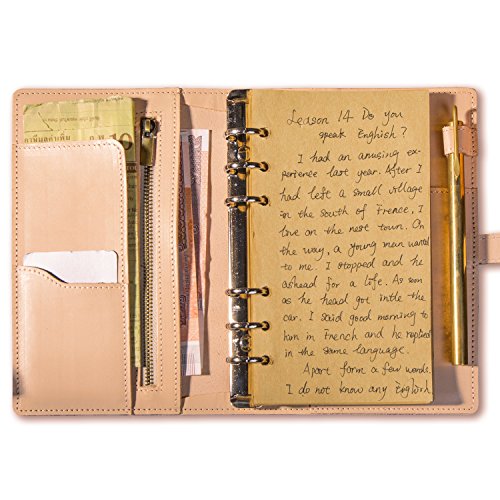 Leason 14 Do you
speak Enghish?
I had an amusing ex-
perience last year. After I
had left a small village
in the south of France, I
love on the nest town. On
the way, a young man wanted
to me. I stopped and he
ashead for a life. As soon
as he head got intle the
car. I said good morning to
him in French and he replied
in the same language.
Apart form a few words.
I do not know any English